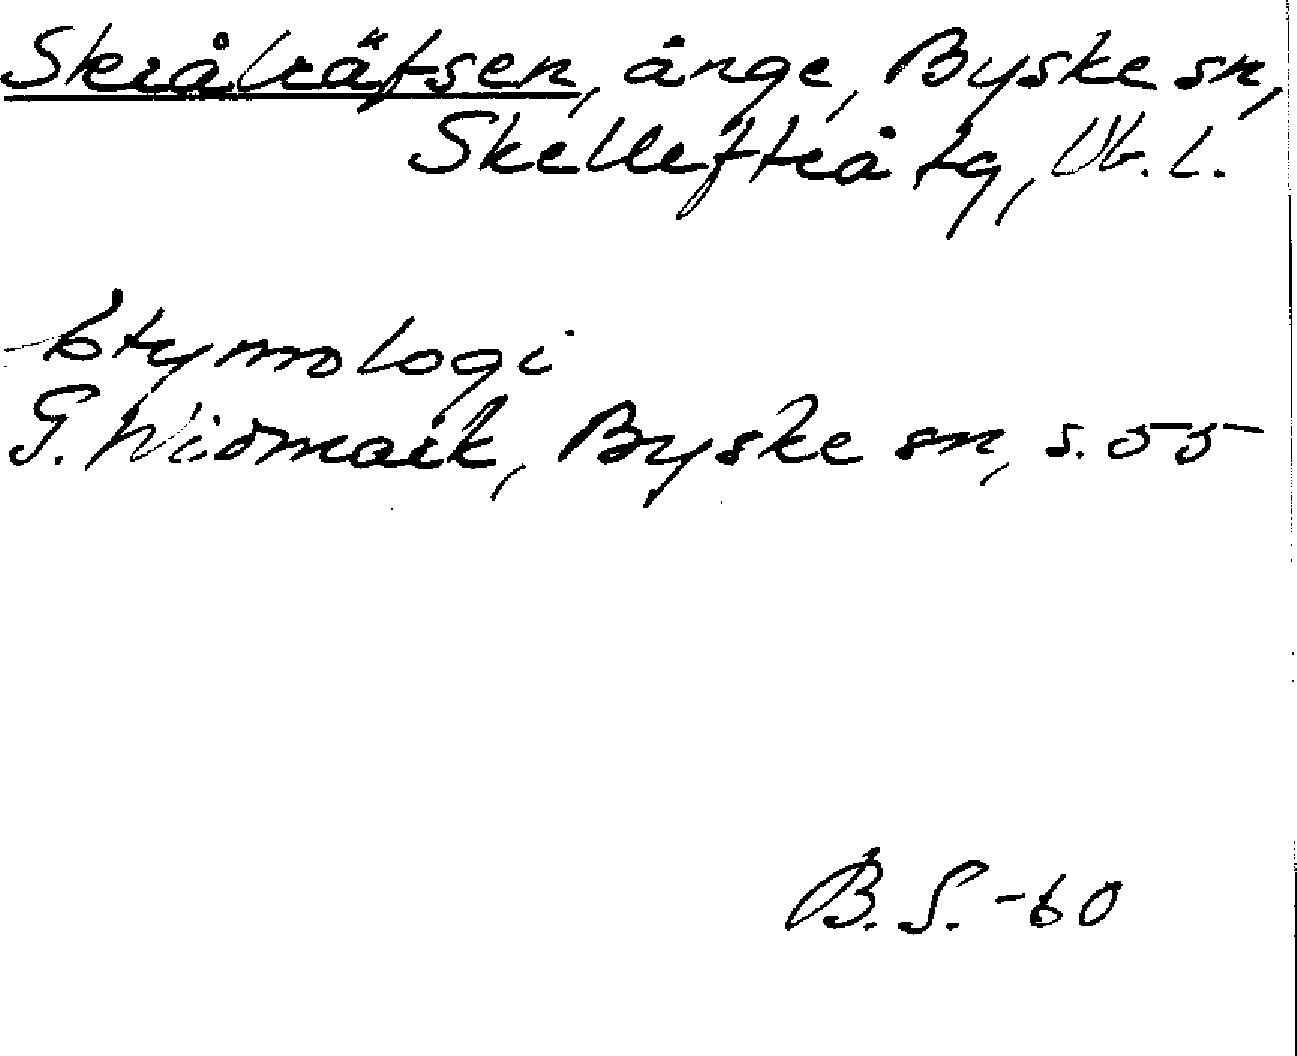 Skrålräfsen, änge, Byske sn,
Skellefteå tg, Vb. l.
Etymologi
G. Widmark, Byske sn, s. 55
B. S. -60